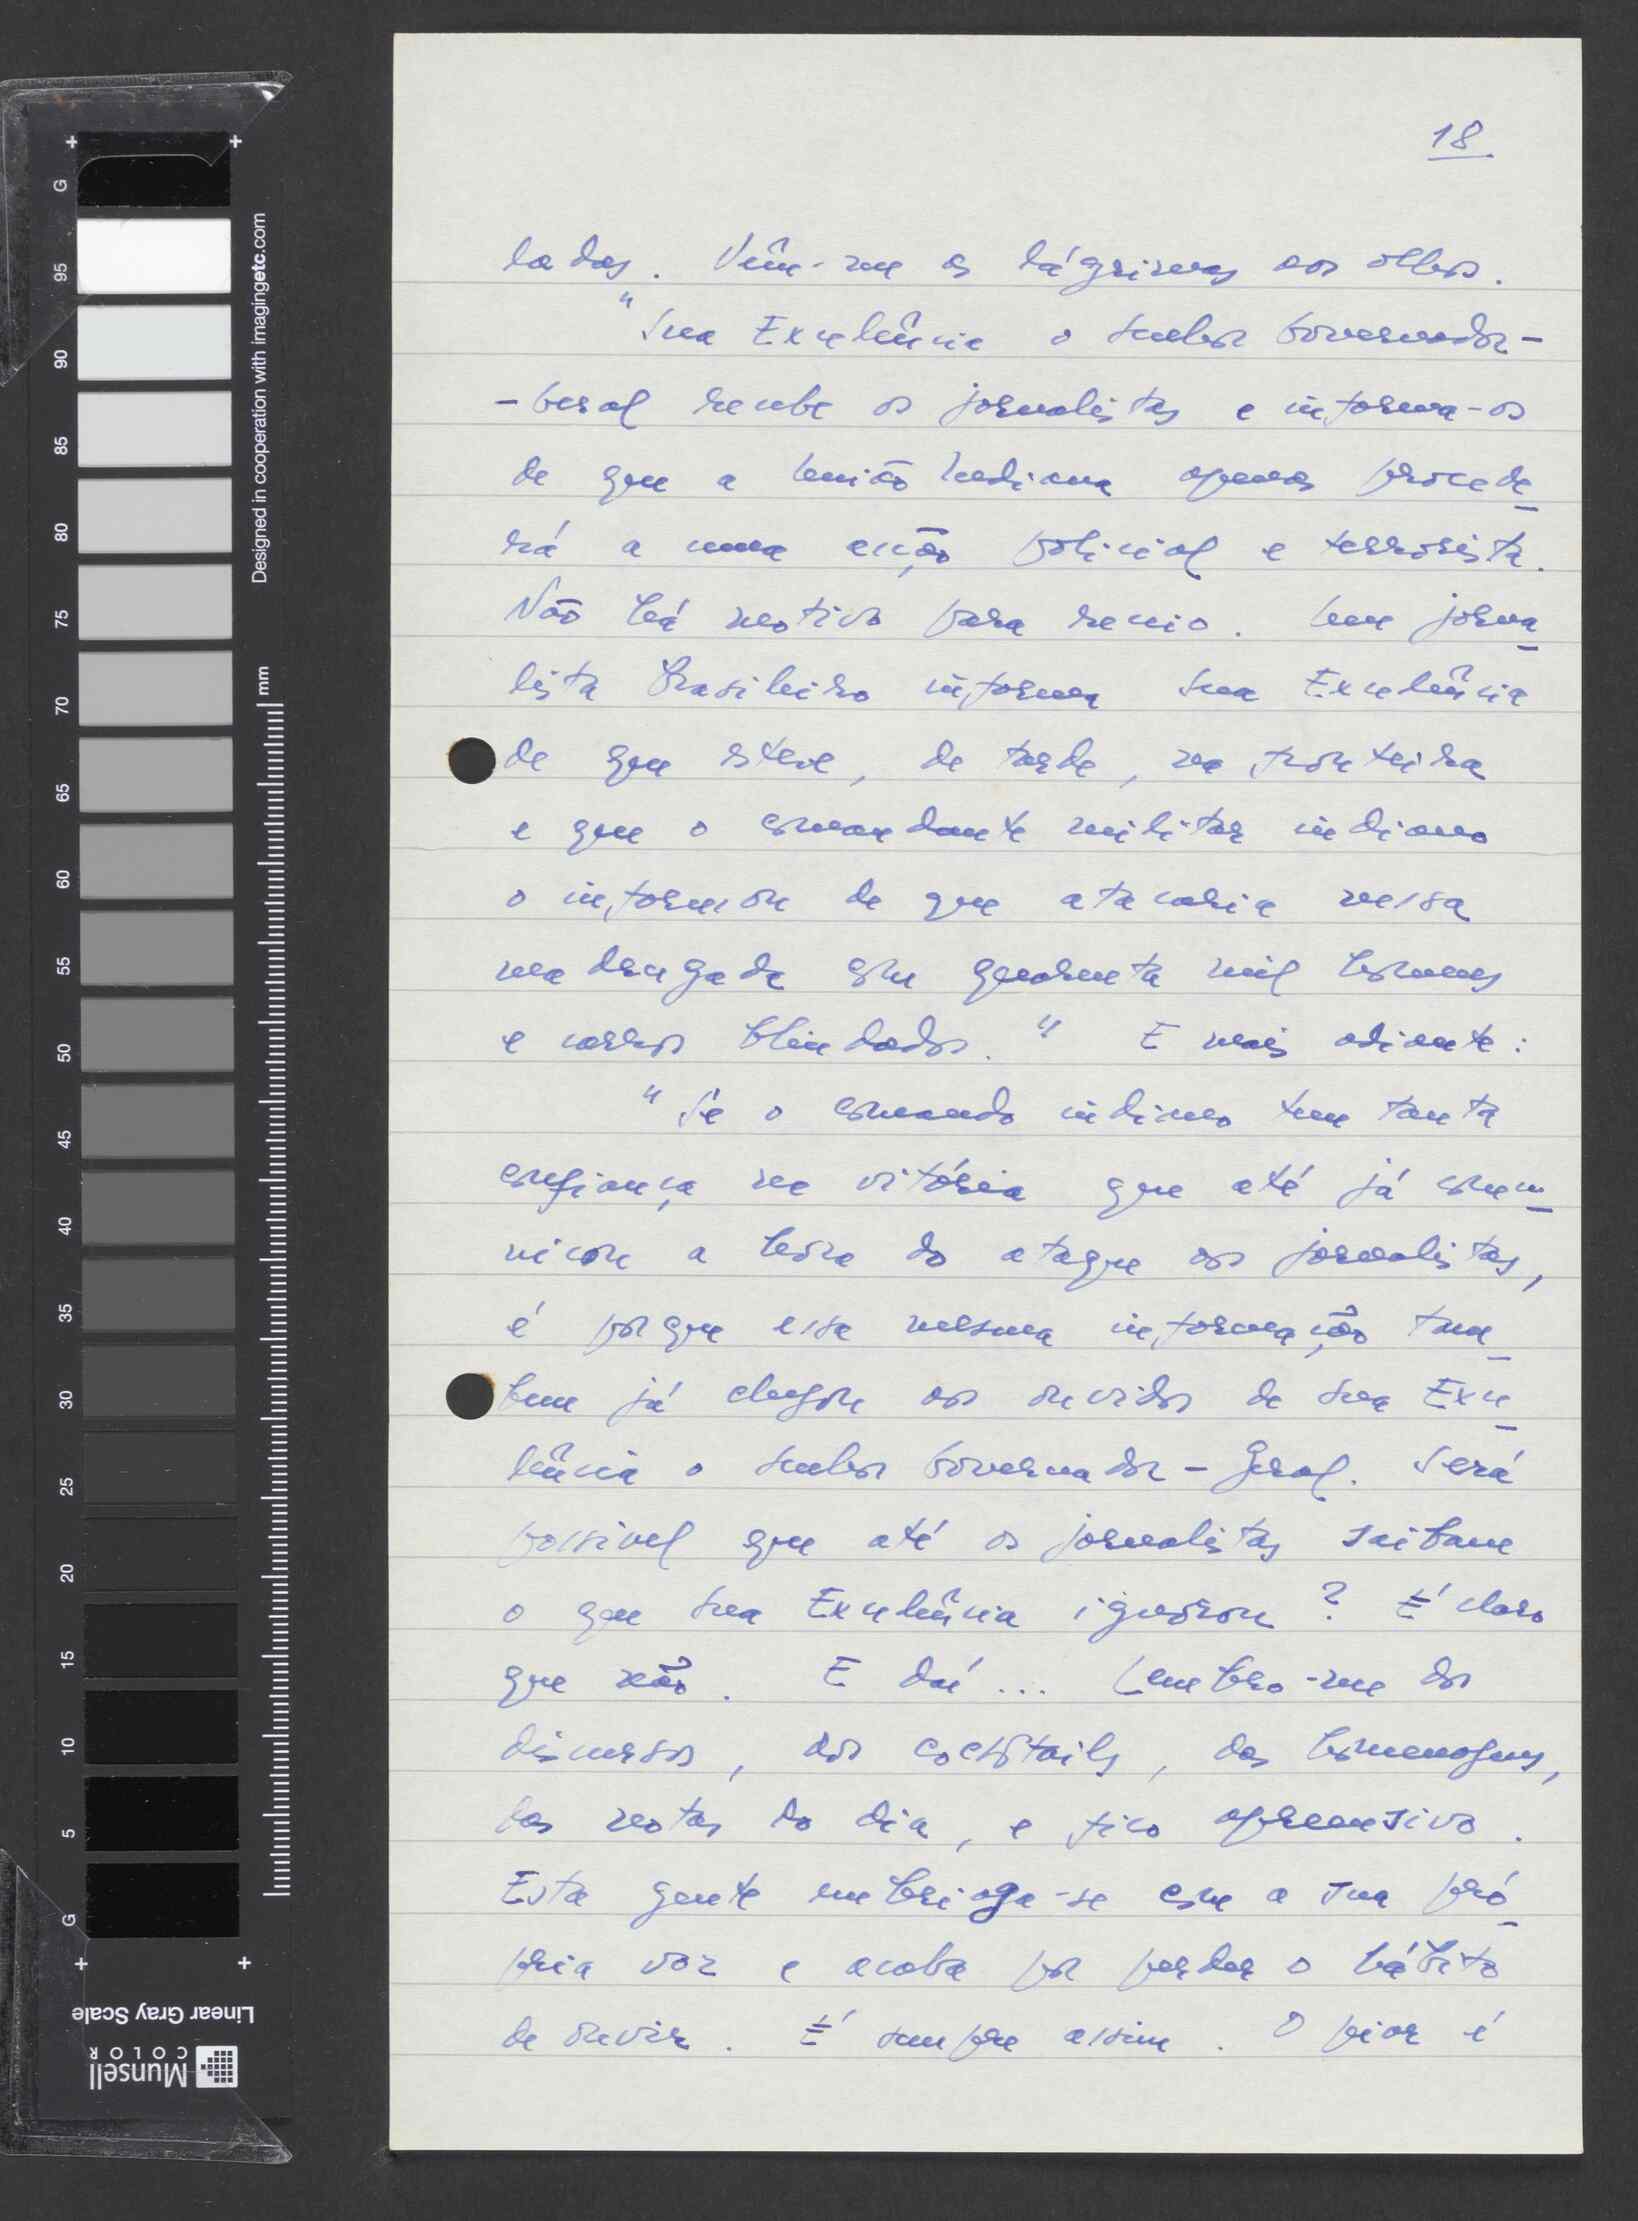 18
lados. Vêm-me as lágrimas aos olhos.
"Sua Excelência o Senhor Governador-
-Geral recebe os jornalistas e informa-os
de que a União Indiana apenas procede
rá a uma acção policial e terrorista.
Não há motivo para receio. Um jorna
lista Brasileiro informa Sua Excelência
de que esteve, de tarde, na fronteira
e que o comandante militar indiano
o informou de que atacaria nessa
madrugada com quarenta mil homens
e carros blindados." E mais adiante:
"Se o comando indiano tem tanta
confiança na vitória que até já comu
nicou a hora do ataque aos jornalistas,
é porque essa mesma informação tam
bem já chegou aos ouvidos de Sua Exce
lência o Senhor Governador-Geral. Será
possivel que até os jornalistas saibam
o que Sua Excelência ignorou? É claro
que não. E daí... Lembro-me dos
discursos, dos cocktails, das homenagens,
das notas do dia, e fico apreensivo.
Esta gente embriaga-se com a sua pró
pria voz e acaba por perder o hábito
de ouvir. É sempre assim. O pior é
Designed in cooperation with imagingetc.com
mm
G 95 90 85 80 75 70 65 60 55 50 45 40 35 30 25 20 15 10 5 G
Linear Gray Scale
Munsell
COLOR